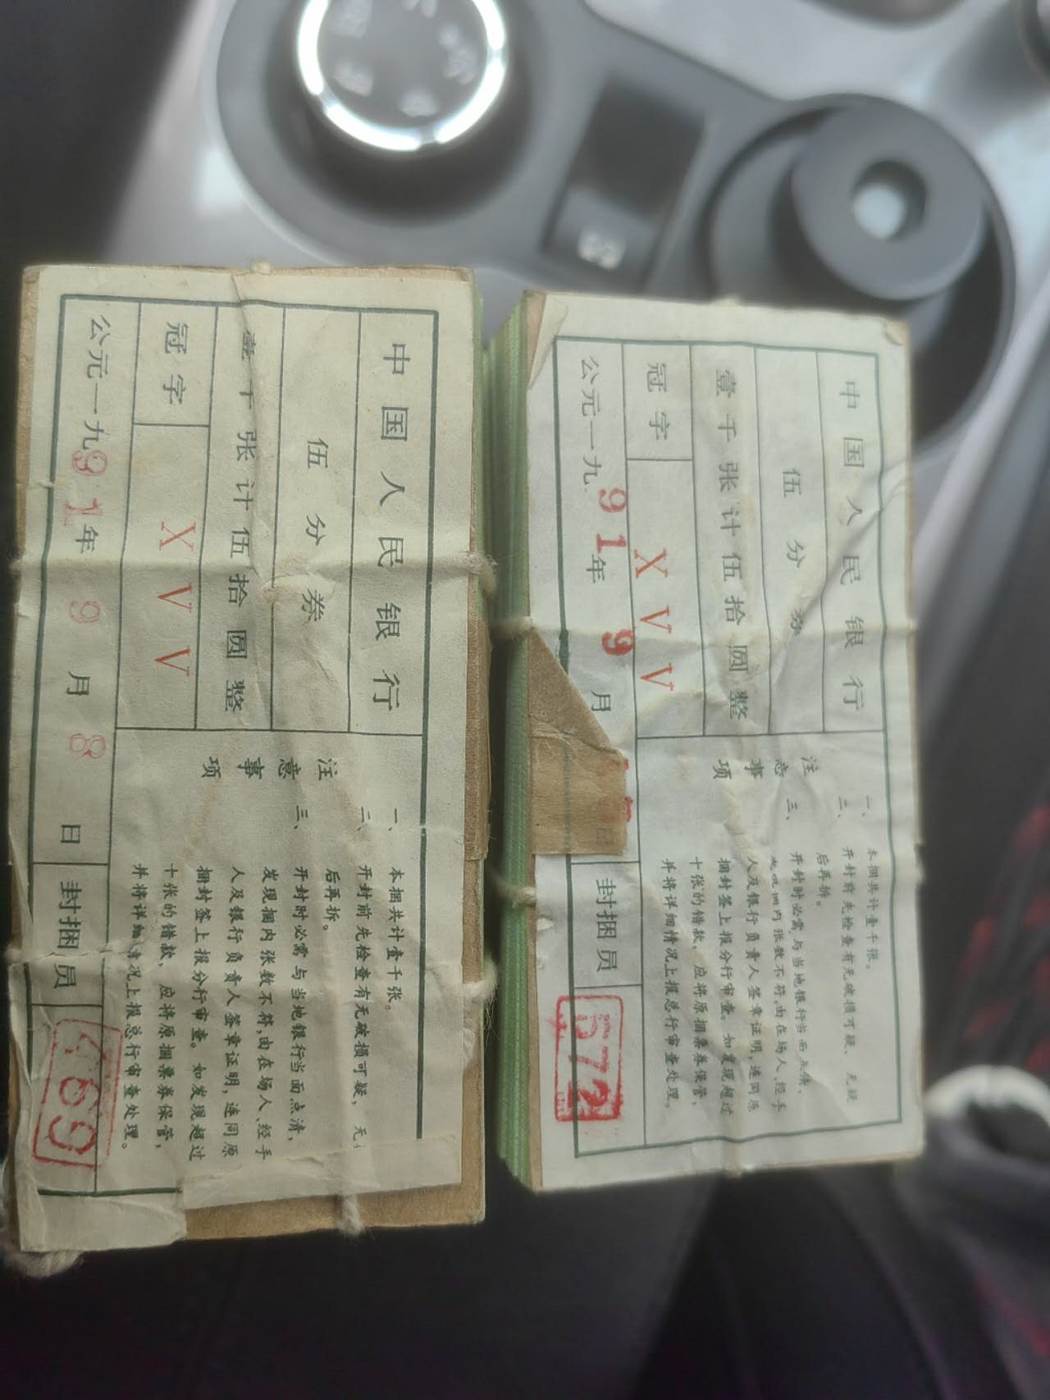 中国人民银行
伍分券
壹千张计伍拾圆整
冠字 X V V
公元一九91年9月8日
封捆员
769
注意事项
一、本捆共计壹千张。
二、开封前先检查有无破损可疑，无
后再拆。
三、开封时必需与当地银行当面点清，
发现捆内张数不符，由在场人、经手
人及银行负责人签章证明，连同原
捆封签上报分行审查。如发现超过
十张的错款，应将原捆票券保管，
并将详细情况上报总行审查处理。
中国人民银行
伍分券
壹千张计伍拾圆整
冠字 X V V
公元一九91年9月
日
封捆员
672
注意事项
一、本捆共计壹千张。
二、开封前先检查有无破损可疑，无疑
后再拆。
三、开封时必需与当地银行当面点清，
捆内张数不符，由在场人、经手
人及银行负责人签章证明，连同原
捆封签上报分行审查。如发现超过
十张的错款，应将原捆票券保管，
并将详细情况上报总行审查处理。